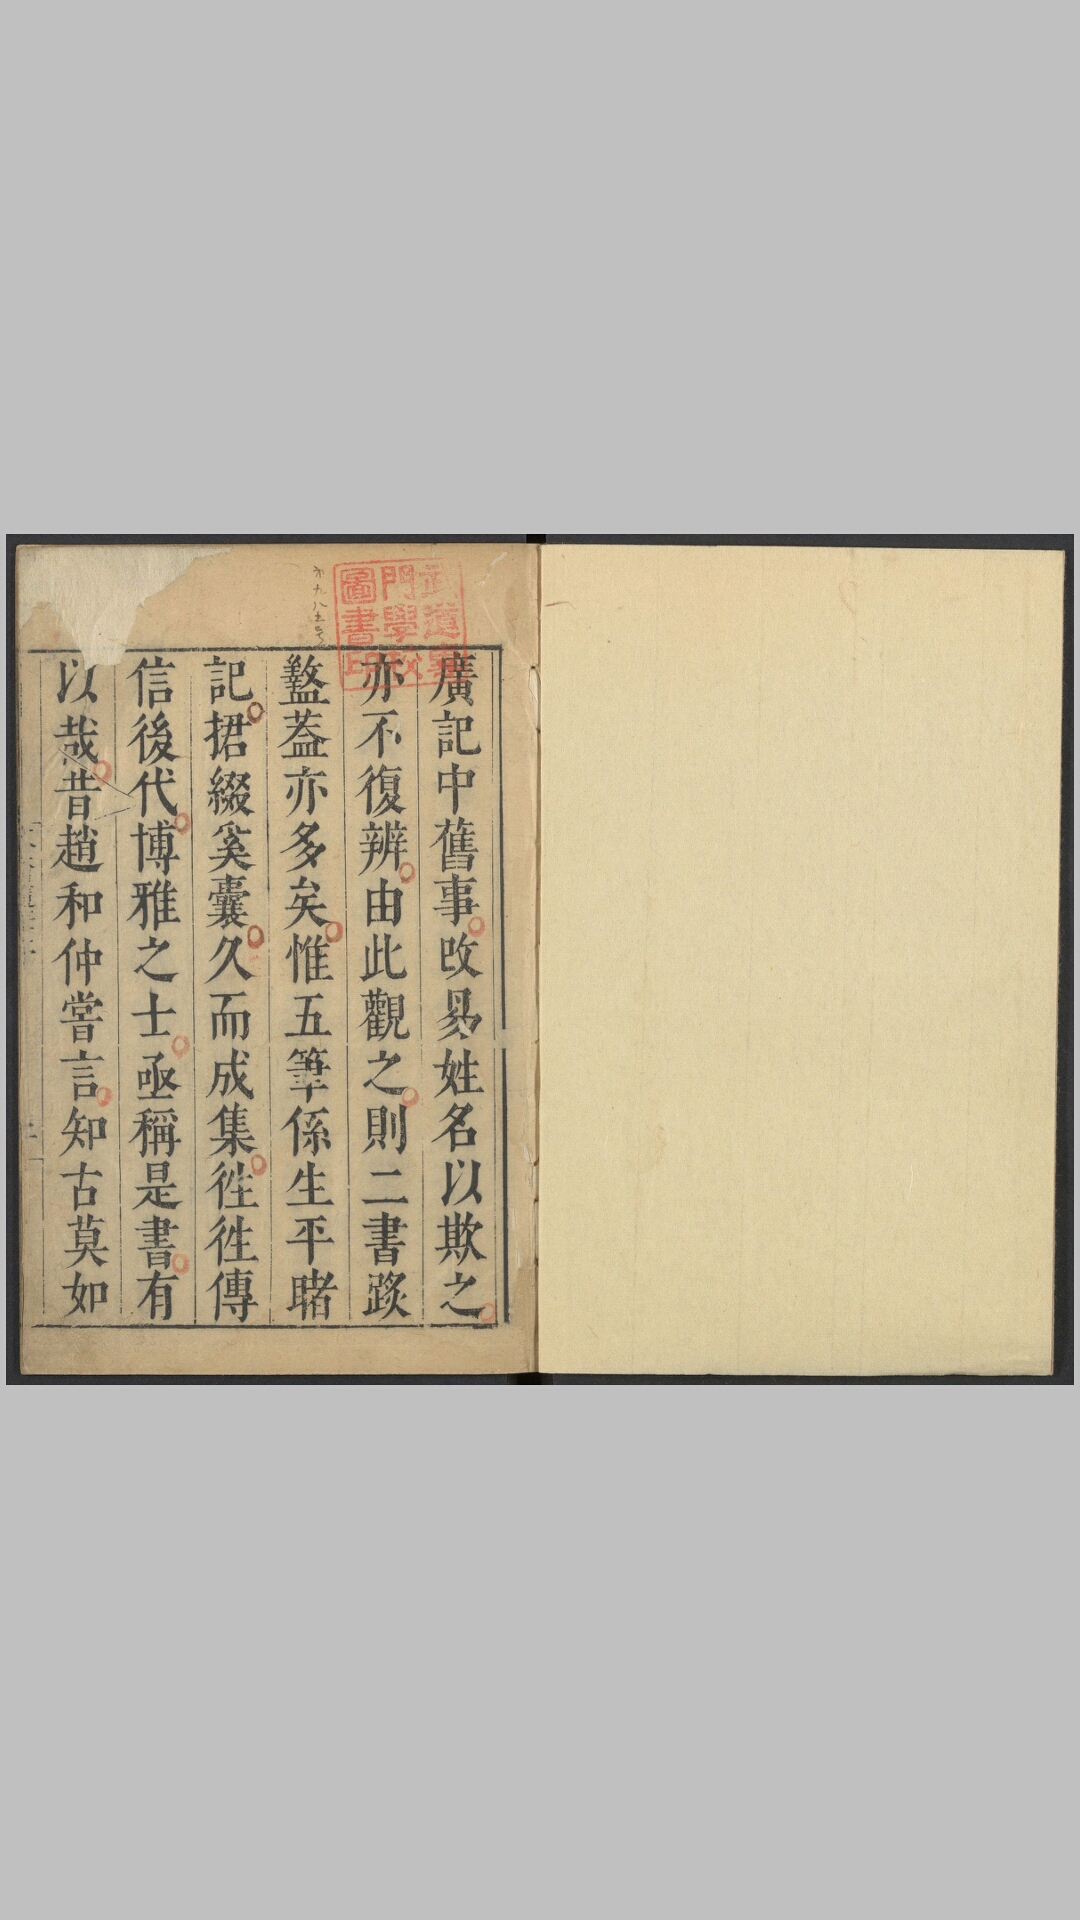 廣記中舊事改易姓名以欺之
亦不復辨由此觀之則二書踳
盭蓋亦多矣惟五筆係生平睹
記捃綴奚囊久而成集徃徃傳
信後代博雅之士亟稱是書有
以哉昔趙和仲嘗言知古莫如